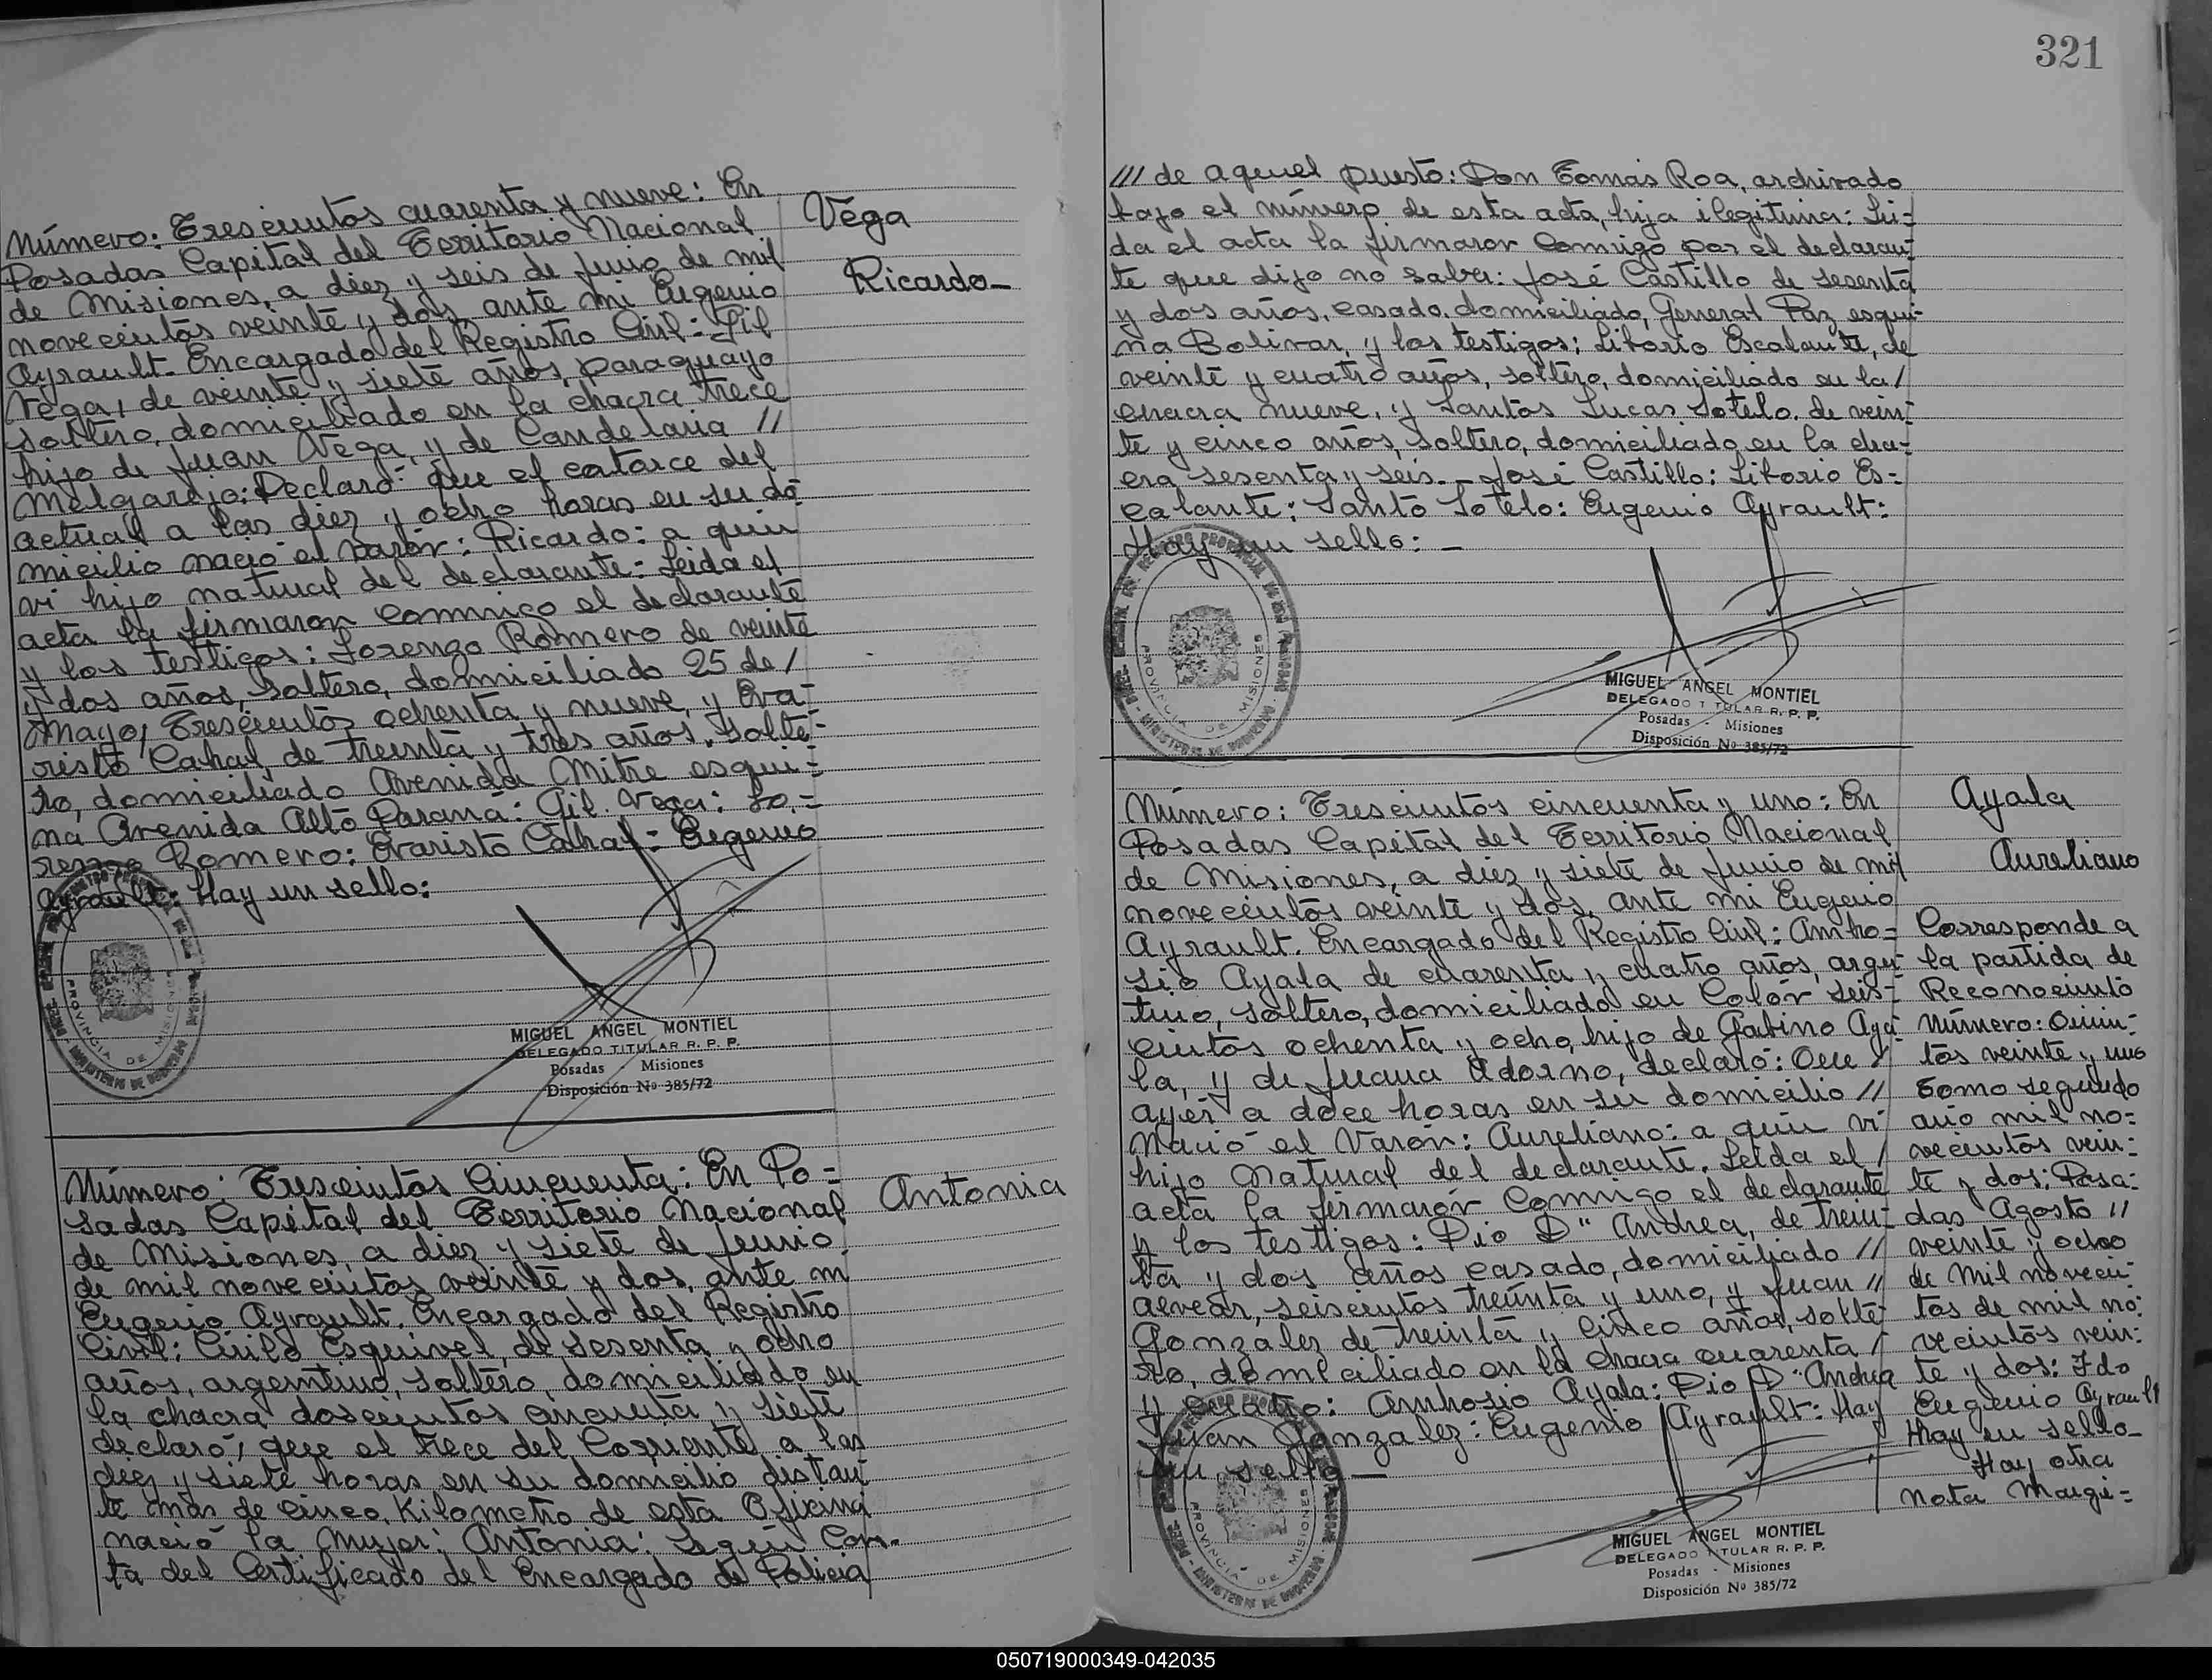 Número: Trescientos cuarenta y nueve: En
Posadas Capital del Territorio Nacional
de Misiones, a diez y seis de Junio de mil
novecientos veinte y dos, ante mi Eugenio
Ayrault. Encargado del Registro Civil: Gil
Vega, de veinte y siete años, paraguayo
soltero, domiciliado en la chacra trece
hijo de Juan Vega, y de Candelaria //
Melgarejo: Declaró: que el catorce del
actual a las diez y ocho horas en su do-
micilio nació el varón: Ricardo: a quien
vi hijo natural del declarante: Leida el
acta la firmaron conmigo el declarante
y los testigos: Lorenzo Romero de veinte
y dos años, soltero, domiciliado 25 de /
Mayo, Trescientos ochenta y nueve, y Eva-
risto Cabral, de treinta y tres años, solte-
ro, domiciliado Avenida Mitre esqui-
na Avenida Alto Paraná: Gil Vega: Lo-
renzo Romero: Evaristo Cabral: Eugenio
Ayrault: Hay un sello:
Vega
Ricardo_
PROVINCIA DE MISIONES
MIGUEL ANGEL MONTIEL
DELEGADO TITULAR R. P. P.
Posadas Misiones
Disposición Nº 385/72
Número: Trescientos Cincuenta: En Po-
sadas Capital del Territorio Nacional
de Misiones, a diez y siete de Junio
de mil novecientos veinte y dos, ante m
Eugenio Ayrault. Encargado del Registro
Civil: Esquivel, de sesenta y ocho
años, argentino, soltero, domiciliado en
la chacra doscientos cincuenta y siete
declaró, que el trece del Corriente a las
diez y siete horas en su domicilio distan-
te más de cinco Kilometro de esta Oficina
nació la mujer: Antonia: según Con-
ta del Certificado del Encargado de Policia
Antonia
321
/// de aquel puesto: Don Tomás Roa, archivado
bajo el número de esta acta, hija ilegitima: Lei-
da el acta la firmaron Conmigo por el declaran-
te que dijo no saber: José Castillo de sesenta
y dos años, casado, domiciliado, General Paz esqui-
na Bolivar, y los testigos: Liborio Escalante, de
veinte y cuatro años, soltero, domiciliado en la /
chacra nueve, y Santos Lucas Sotelo, de vein-
te y cinco años, soltero, domiciliado en la cha-
cra sesenta y seis. José Castillo: Liborio Es-
calante: Santo Sotelo: Eugenio Ayrault:
Hay un sello: _
PROVINCIA DE MISIONES
MIGUEL ANGEL MONTIEL
DELEGADO TITULAR R. P. P.
Posadas - Misiones
Disposición Nº 385/72
Número: Trescientos cincuenta y uno: En
Posadas Capital del Territorio Nacional
de Misiones, a diez y siete de Junio de mil
novecientos veinte y dos, ante mi Eugenio
Ayrault. Encargado del Registro Civil: Ambro-
sio Ayala de cuarenta y cuatro años, argen-
tino, soltero, domiciliado en Colón seis-
cientos ochenta y ocho, hijo de Gabino Aya-
la, y de Juana Adorno, declaró: Que /
ayer a doce horas en su domicilio //
Nació el Varón: Aureliano: a quien vi
hijo Natural del declarante. Leida el /
acta la firmaron Conmigo el declarante
y los testigos: Pio D" Andrea, de trein-
ta y dos años casado, domiciliado //
Alvear, seiscientos treinta y uno, y Juan //
Gonzalez de treinta y cinco años, solte-
ro, domiciliado en la chacra cuarenta /
y cuatro: Ambrosio Ayala: Pio D" Andrea
Juan Gonzalez: Eugenio Ayrault: Hay
un sello_
Ayala
Aureliano
Corresponde a
la partida de
Reconociento
Número: Quin-
tos veinte y uno
Tomo segundo
año mil no-
vecientos vein-
te y dos: Posa-
das Agosto //
veinte y ocho
de Mil novecien-
tos de mil no-
vecientos vein-
te y dos: Fdo
Eugenio Ayrault
Hay un sello_
Hay otra
nota Margi-
PROVINCIA DE MISIONES
MIGUEL ANGEL MONTIEL
DELEGADO TITULAR R. P. P.
Posadas - Misiones
Disposición Nº 385/72
050719000349-042035